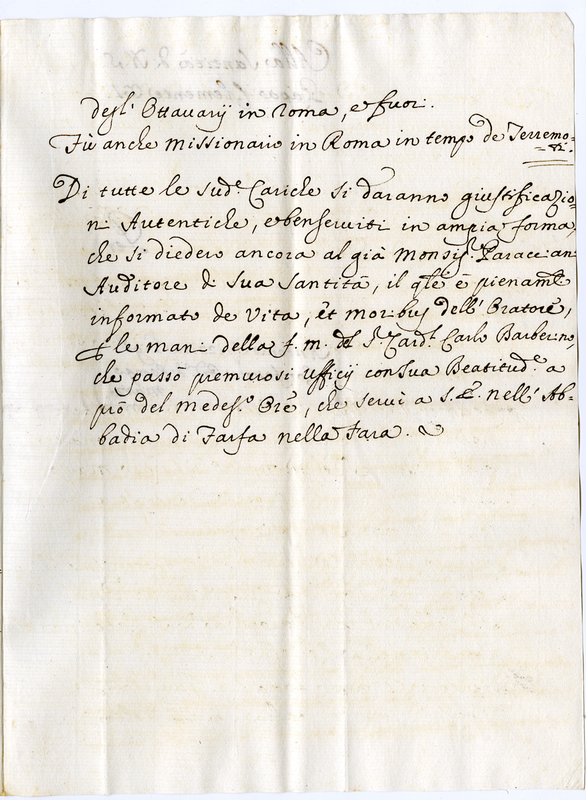 degl' Ottavarij in Roma, e fuori.
Fù anche Missionario in Roma in tempo de Terremo-
ti.
Di tutte le sud.e Cariche si daranno giustificazio-
ni Autentiche, e benserviti in ampia forma,
che si diedero ancora al già Monsig.r Paracciani
Auditore di Sua Santità, il qle è pienam.te
informato de Vita, et moribus dell' Oratore,
le man della f. m. del S.r Card.l Carlo Barberino,
che passò premurosi ufficij con Sua Beatitud.e a
prò del medes.o Ore, che servì a S. E. nell' Ab-
badia di Farfa nella Fara.